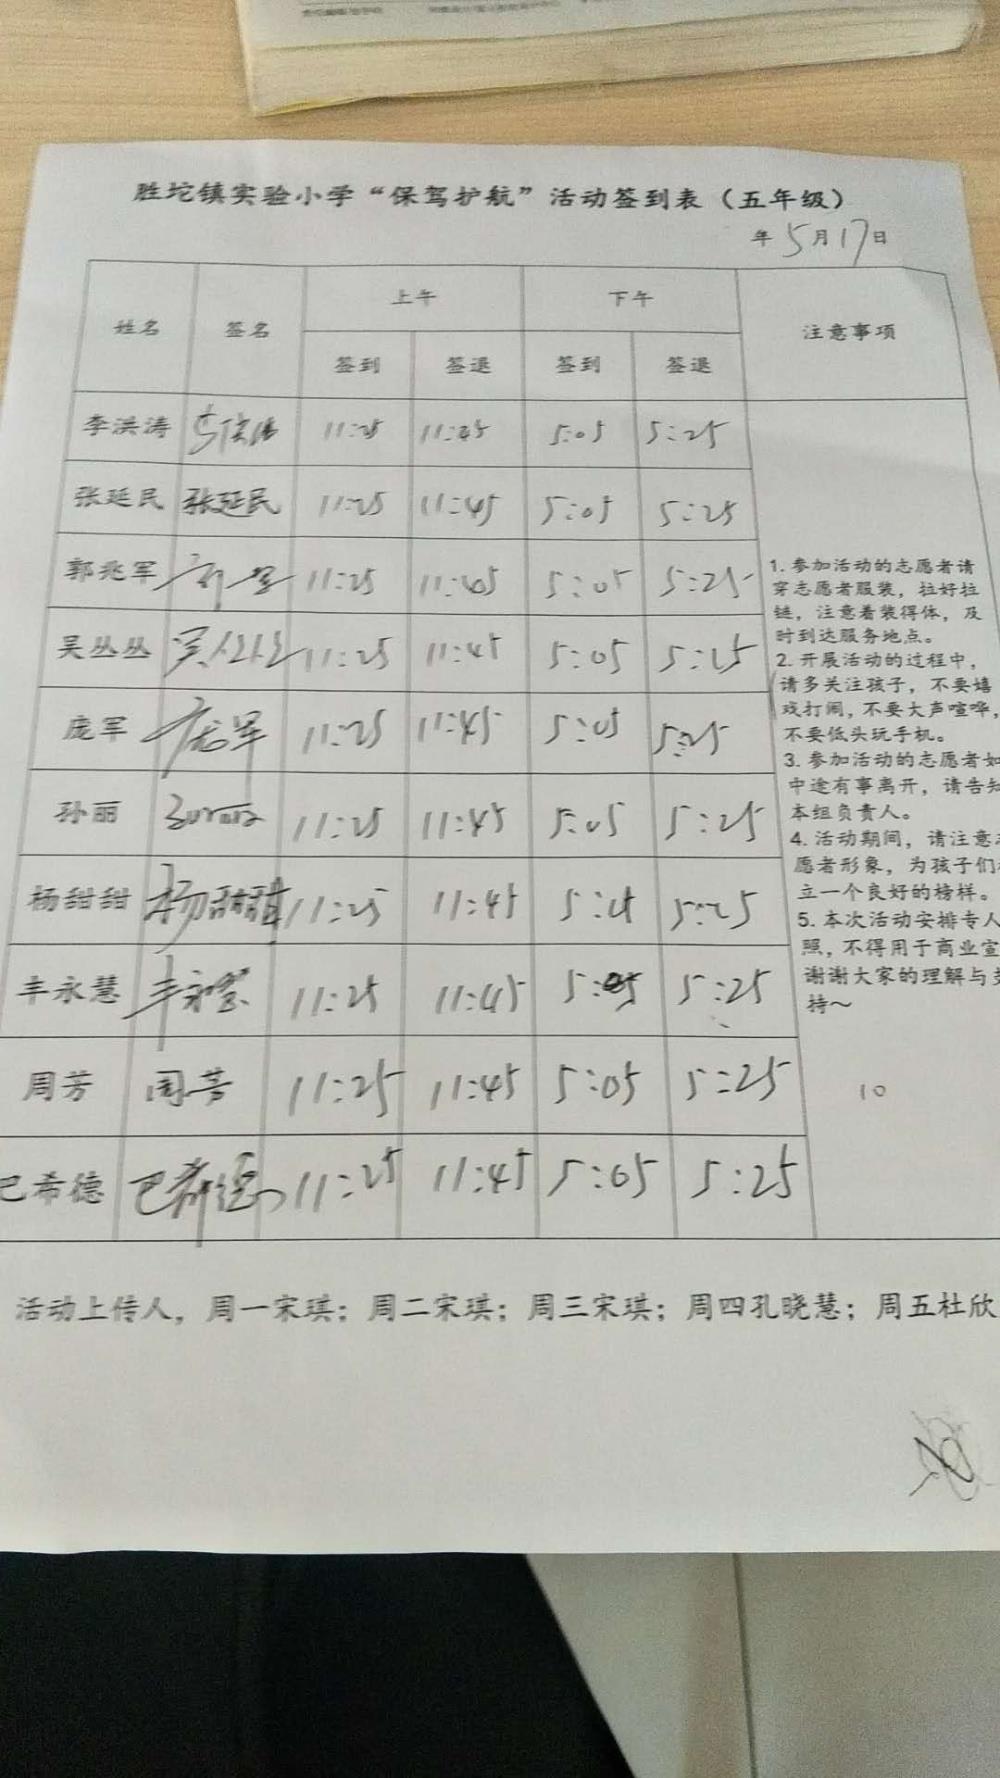 胜坨镇实验小学“保驾护航”活动签到表（五年级）
年5月17日
姓名 签名 上午 下午 注意事项
签到 签退 签到 签退
李洪涛 11:25 11:45 5:05 5:25
张延民 张延民 11:25 11:45 5:05 5:25
郭兆军 11:25 11:45 5:05 5:25
吴丛丛 吴丛丛 11:25 11:45 5:05 5:25
庞军 庞军 11:25 11:45 5:05 5:25
孙丽 11:25 11:45 5:05 5:25
杨甜甜 杨甜甜 11:25 11:45 5:25
丰永慧 丰永慧 11:25 11:45 5:05 5:25
周芳 周芳 11:25 11:45 5:05 5:25
巴希德 巴希德 11:25 11:45 5:05 5:25
1. 参加活动的志愿者请
穿志愿者服装，拉好拉
链，注意着装得体，及
时到达服务地点。
2. 开展活动的过程中，
请多关注孩子，不要嬉
戏打闹，不要大声喧哗，
不要低头玩手机。
3. 参加活动的志愿者如
中途有事离开，请告知
本组负责人。
4. 活动期间，请注意
愿者形象，为孩子们
立一个良好的榜样。
5. 本次活动安排专人
照，不得用于商业宣
谢谢大家的理解与支
持～
10
活动上传人，周一宋琪；周二宋琪；周三宋琪；周四孔晓慧；周五杜欣